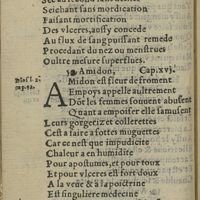 Seichant sans mordication
Faisant mortification
Des vlceres, aussy concede
Au flux de sang puissant remede
Procedant du nez ou menstrues
Oultre mesure superflues.
Amidon, Cap.xvj.
Amidon est fleur de froment
Empoys appelle aultrement
Dôt les femmes souuent abusent
Quant a empoiser elle samusent
Leurs gorgetiz et collerettes
Cest a faire a sottes muguettes
Car ce nest que impudicite
Chaleur a en humidite
Pour apostumes, et pour toux
Et pour vlceres est fort doux
A la veue & a la poictrine
Est singuliere medecine